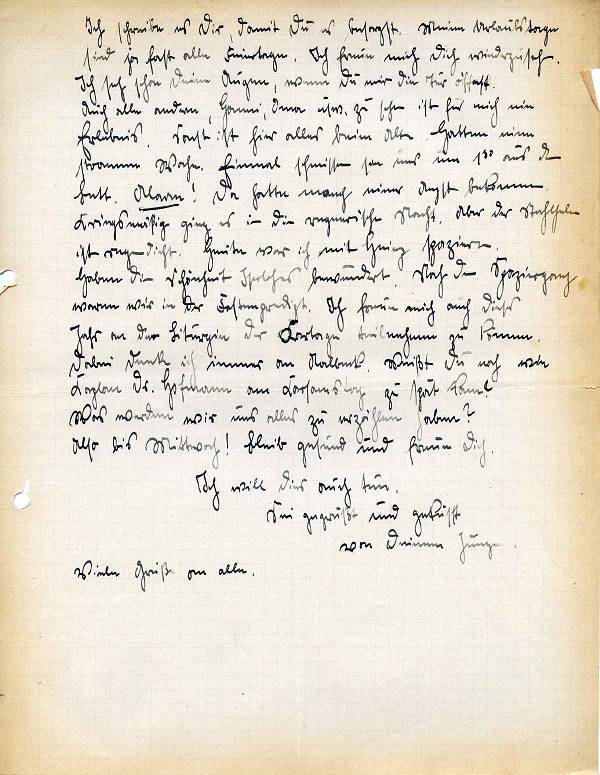 Ich schreibe es Dir, damit Du es besorgst. Meine Urlaubstage
sind ja fast alle Feiertage. Ich freue mich Dich wiederzuseh.
Ich seh schon Deine Augen, wenn Du mir die Tür öffnest.
Auch alle andern, Hanni, Oma usw. zu sehen ist für mich ein
Erlebnis. Sonst ist hier alles beim Alten. Hatten eine
stramme Woche. Einmal schmissen sie uns um 1³⁰ aus dem
Bett. Alarm! Da hatte manch einer Angst bekommen.
Kriegsmäßig ging es in die regnerische Nacht. Aber der Stahlhelm
ist regendicht. Heute war ich mit Heinz spazieren.
Haben die Schönheit bewundert. Nach dem Spaziergang
waren wir in der Fastenpredigt. Ich freue mich auch dieses
Jahr an der Liturgie der Kartage teilnehmen zu können.
Dabei denke ich immer an. Weißt Du noch wie
Kaplan Dr. Hofmann am Karsamstag zu spät kam?
Was werden wir uns alles zu erzählen haben?
Also bis Mittwoch! Bleib gesund und freue Dich.
Ich will dies auch tun.
Sei gegrüßt und geküsst
von Deinem Junge.
Viele Grüße an alle.